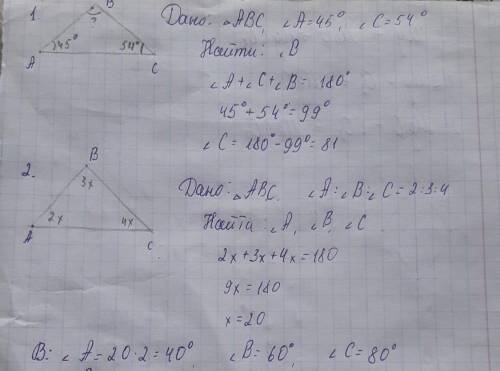 1
B
?
A 45° 54° C
Дано: △ABC, ∠A=45°, ∠C=54°
Найти: ∠B
∠A+∠C+∠B=180°
45°+54°=99°
∠C=180°-99°=81
2.
B
3x
2x 4x
A C
Дано: △ABC. ∠A:∠B:∠C=2:3:4
Найти: ∠A, ∠B, ∠C
2x+3x+4x=180
9x=180
x=20
В: ∠A=20·2=40° ∠B=60° ∠C=80°